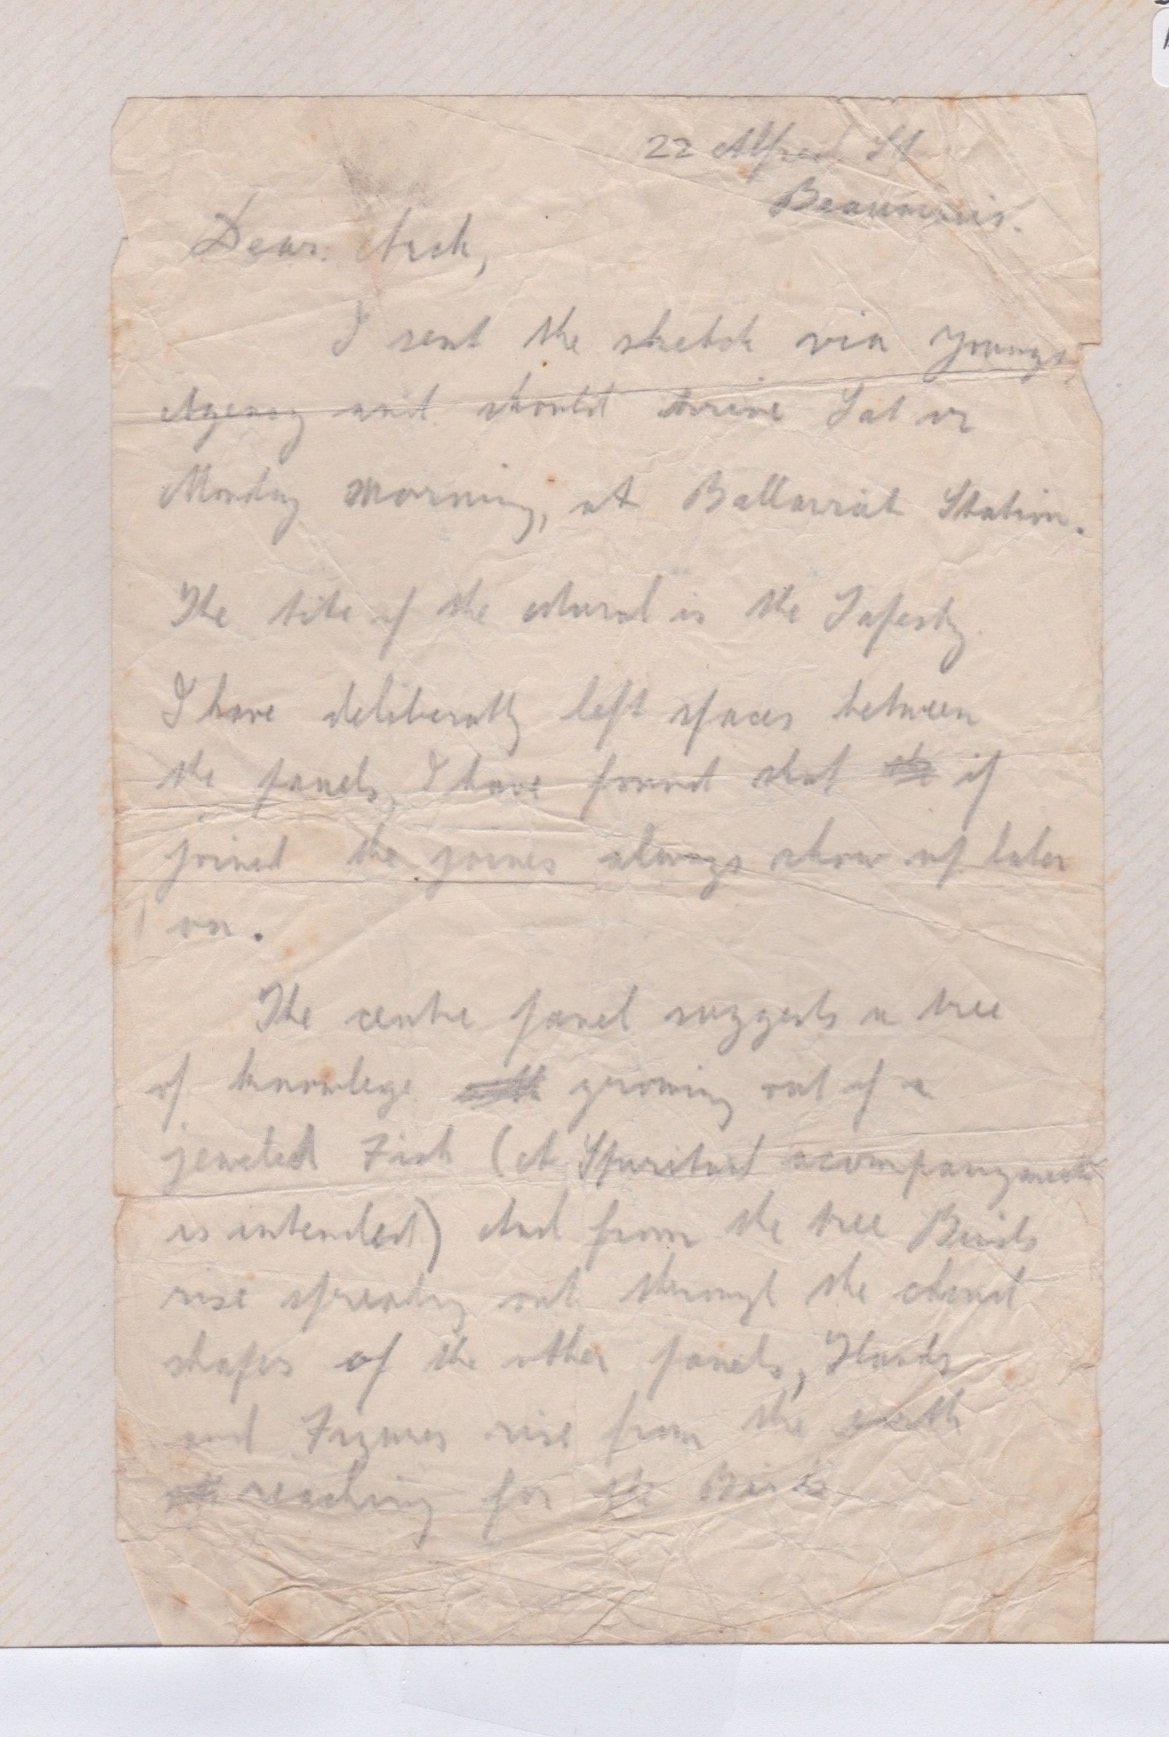 22 Alfred St
Beaumaris.
Dear Arch,
I sent the sketch via Youngs
Agency and should arrive Sat or
Monday morning, at Ballarrat Station.
The title of the Mural is the Tapesty.
I have deliberatly left spaces between
the panels, I have found that the if
joined the joines always show up later
on.
The centre panel suggests a tree
of knowlege growing out of a
jeweled Fish (A Spuritual acompanyment
is intended) And from the tree Birds
rise spreading out through the cloud
shapes of the other panels, Hands
and Figures rise from the earth
reaching for the Birds